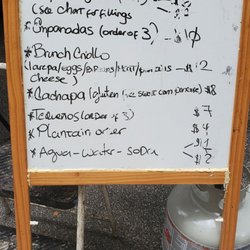 (see chart for fillings
* Empanadas (order of 3) - $10
* Brunch Criollo
(arepa/eggs/ /Ham/ - $12
cheese)
* Cachapa (gluten free sweet corn pancake) $8
* Tequeños (order of 3) $7
* Plantain order $4
* Agua - Water - Soda $1
$2